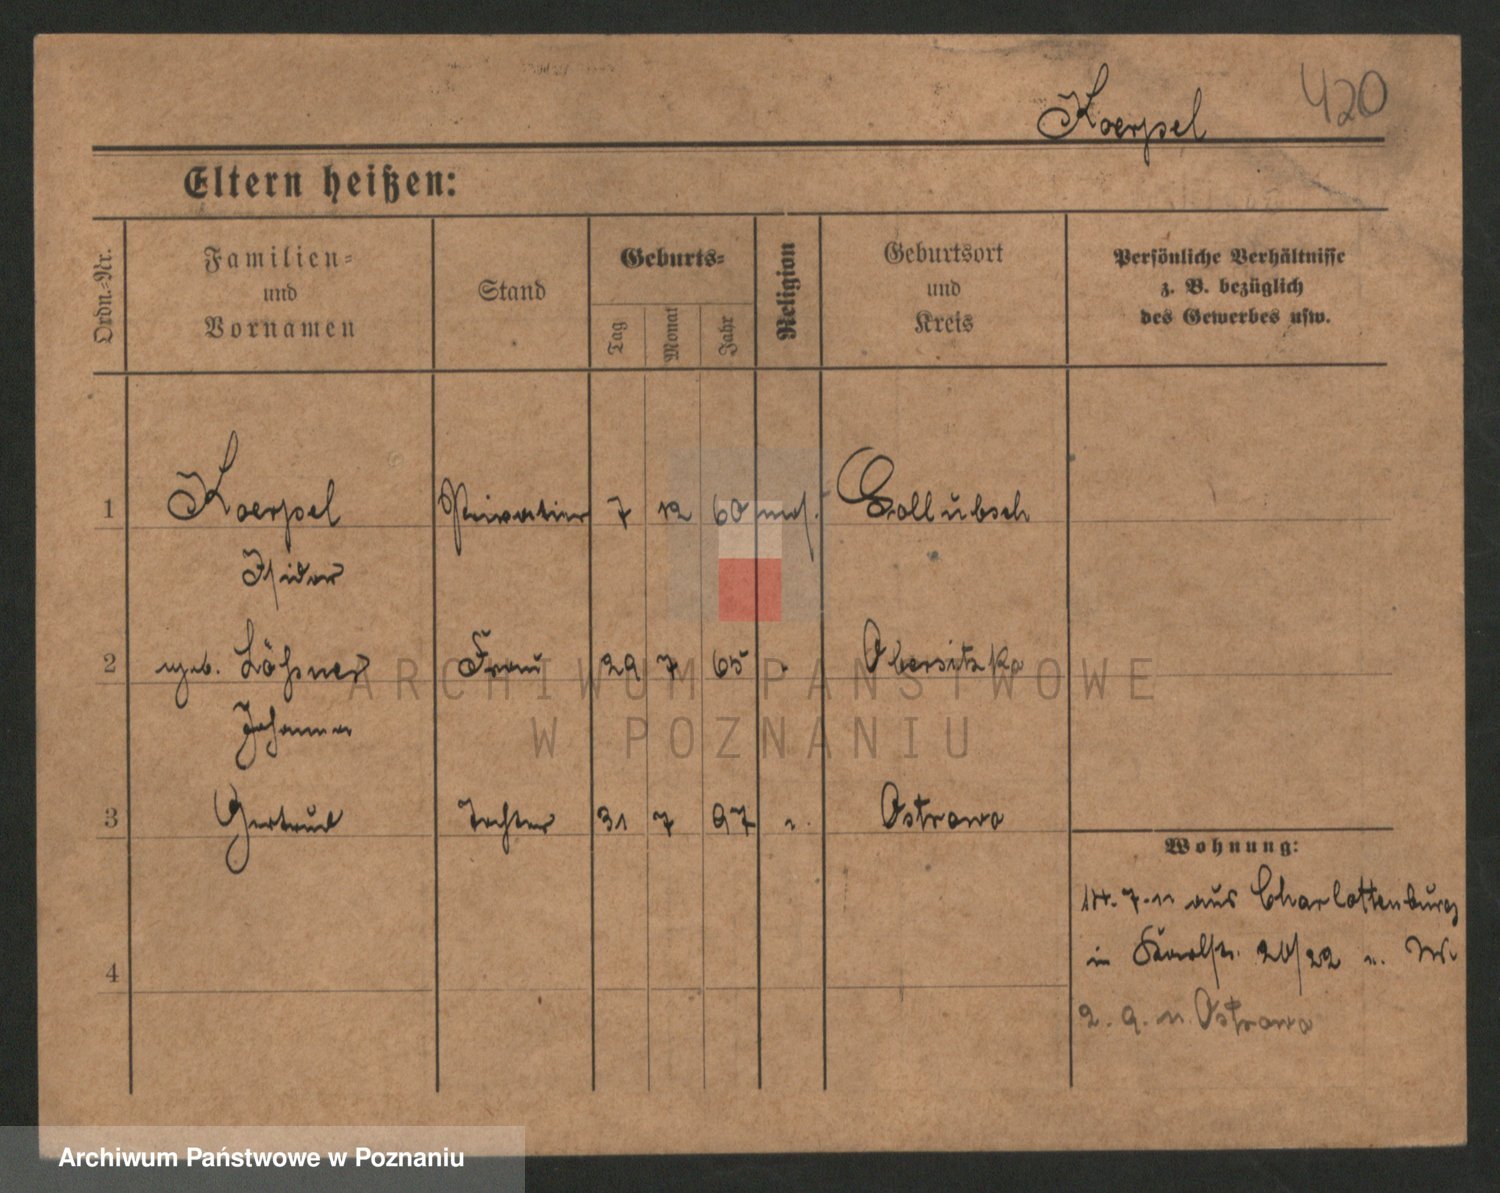 Koerpel 420
Eltern heißen:
Ordn.-Nr.
Familien-
und
Vornamen
Stand
Geburts-
Tag
Monat
Jahr
Religion
Geburtsort
und
Kreis
Persönliche Verhältnisse
z. B. bezüglich
des Gewerbes usw.
1 Koerpel Privatier 7 12 60 mos. Gollubsch
Isidor
2 geb. Lößner Frau 29 7 65 " Obersitzko
Johanna
3 Gertrud Tochter 31 7 97 " Ostrowo
Wohnung:
14. 7. 11 aus Charlottenburg
4 in Karlstr. 20/22 b. W.
2. 9. n Ostrowo
ARCHIWUM PAŃSTWOWE
W POZNANIU
Archiwum Państwowe w Poznaniu